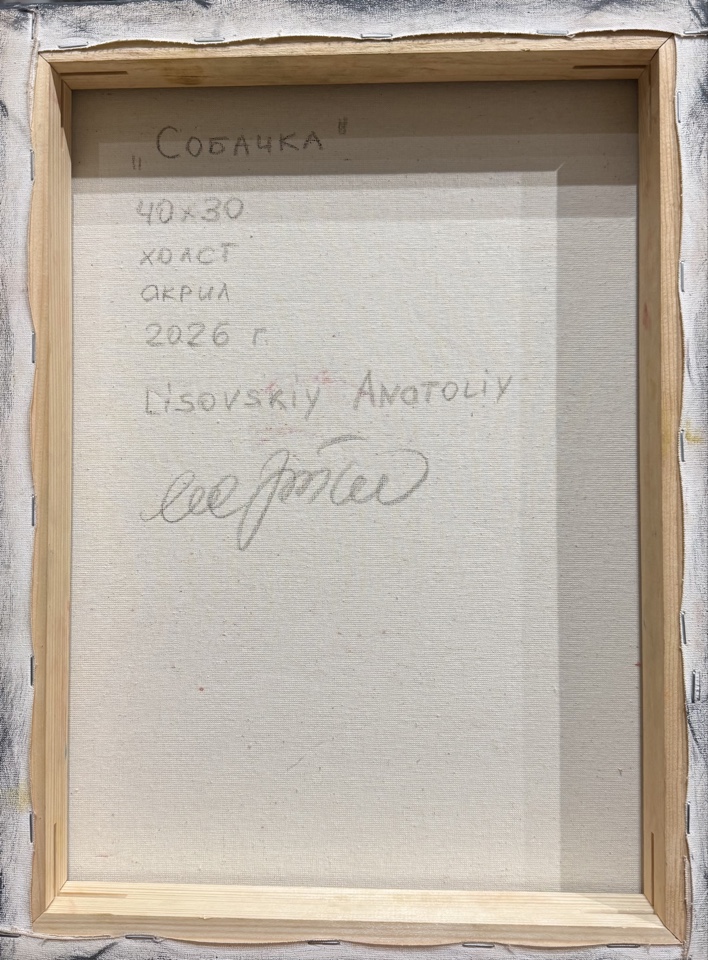 „Собачка"
40x30
холст
акрил
2026 г.
Lisovskiy Anatoliy